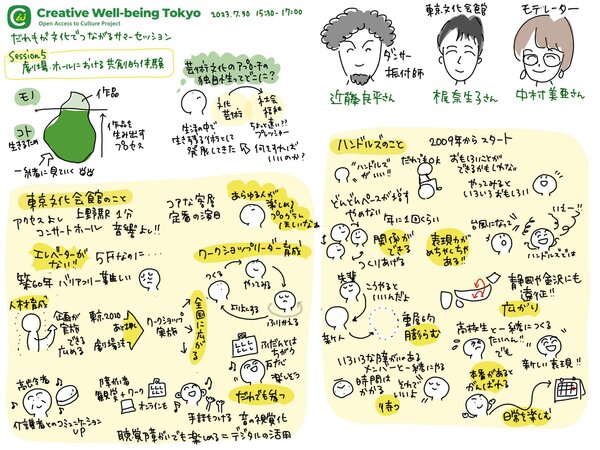 Creative Well-being Tokyo
Open Access to Culture Project
2023.7.30 15:30-17:00
だれもが文化でつながるサマーセッション
Session5
劇場・ホールにおける共創的体験
モノ
作品
コト
生きるため
作品を
生み出す
プロセス
一緒に見ていく
芸術文化のアプローチの
独自性ってどこに?
文化
芸術
社会
福祉
生活の中で
生き残る術として
発展してきた
何をすれば
いいのか?
東京文化会館
モデレーター
ダンサー
振付師
近藤良平さん
梶奈生子さん
中村美亜さん
東京文化会館のこと
アクセスよし 上野駅 1分
コンサートホール 音響よし!!
エレベーターが
ない!!
5Fなのに…
築60年 バリアフリー難しい
コアな客層
定番の演目
あらゆる人が
楽しめる
プログラム
ほしいなぁ
人材育成
企画が
実施
できる
広める
東京2020
劇場法
ワークショップ
実施
全国に広がる
ワークショップリーダー育成
つくる
やってみる
ふりかえる
ふだんとは
ちがう
楽しそう
だれでも育つ
お出かけ
介護者とのコミュニケーション
UP
障がい者
観覧+ワーク
オンラインも
手話をつける
音の視覚化
聴覚障がいでも楽しめる=デジタルの活用
ハンドルズのこと
2009年からスタート
"ハンドルズ"
がいい!!
だれでもよ
おもしろいことが
できるかもしれない
やってみると
いろいろおもしろい
どんどんペースが落ちず
やめない
年に1回くらい
関係が
できる
つくりあげる
表現力が
めちゃくちゃ
ある!!
台風になって
いえー!!
ハンドルズでは
先輩
こうやると
いいんだよ
新人
膨らむ
静岡や金沢にも
遠征!!
広がり
高校生と一緒につくる
たいへん!!
でも
新しい表現!!
いろいろな障がいのある
メンバーと一緒にやる
時間は
かかる
それで
いいよ
待つ
本番があると
がんばれる
日常を楽しむ